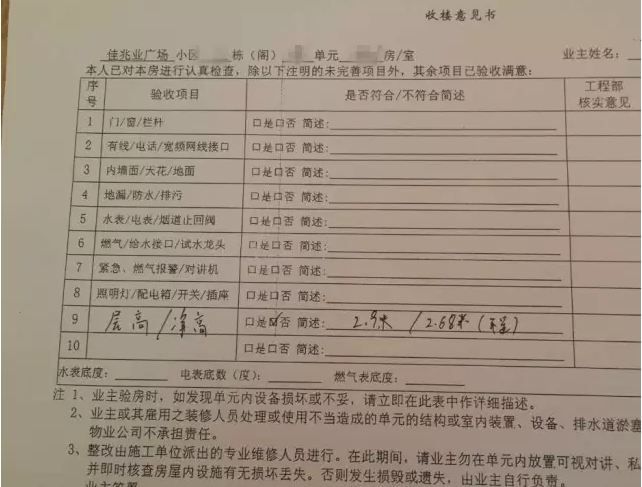 收楼意见书
佳兆业广场 小区 栋（阁） 单元 房/室 业主姓名：
本人已对本房进行认真检查，除以下注明的未完善项目外，其余项目已验收满意：
序号 验收项目 是否符合/不符合简述 工程部核实意见
1 门/窗/栏杆 口是口否 简述：
2 有线/电话/宽频网线接口 口是口否 简述：
3 内墙面/天花/地面 口是口否 简述：
4 地漏/防水/排污 口是口否 简述：
5 水表/电表/烟道止回阀 口是口否 简述：
6 燃气/给水接口/试水龙头 口是口否 简述：
7 紧急、燃气报警/对讲机 口是口否 简述：
8 照明灯/配电箱/开关/插座 口是口否 简述：
9 层高/净高 口是☑否 简述：2.9米/2.68米（）
10 口是口否 简述：
水表底度： 电表底数（度）： 燃气表底度：
注 1、业主验房时，如发现单元内设备损坏或不妥，请立即在此表中作详细描述。
2、业主或其雇用之装修人员处理或使用不当造成的单元的结构或室内装置、设备、排水道淤塞
物业公司不承担责任。
3、整改由施工单位派出的专业维修人员进行。在此期间，请业主勿在单元内放置可视对讲、私
并即时核查房屋内设施有无损坏丢失。否则发生损毁或遗失，由业主自行负责。